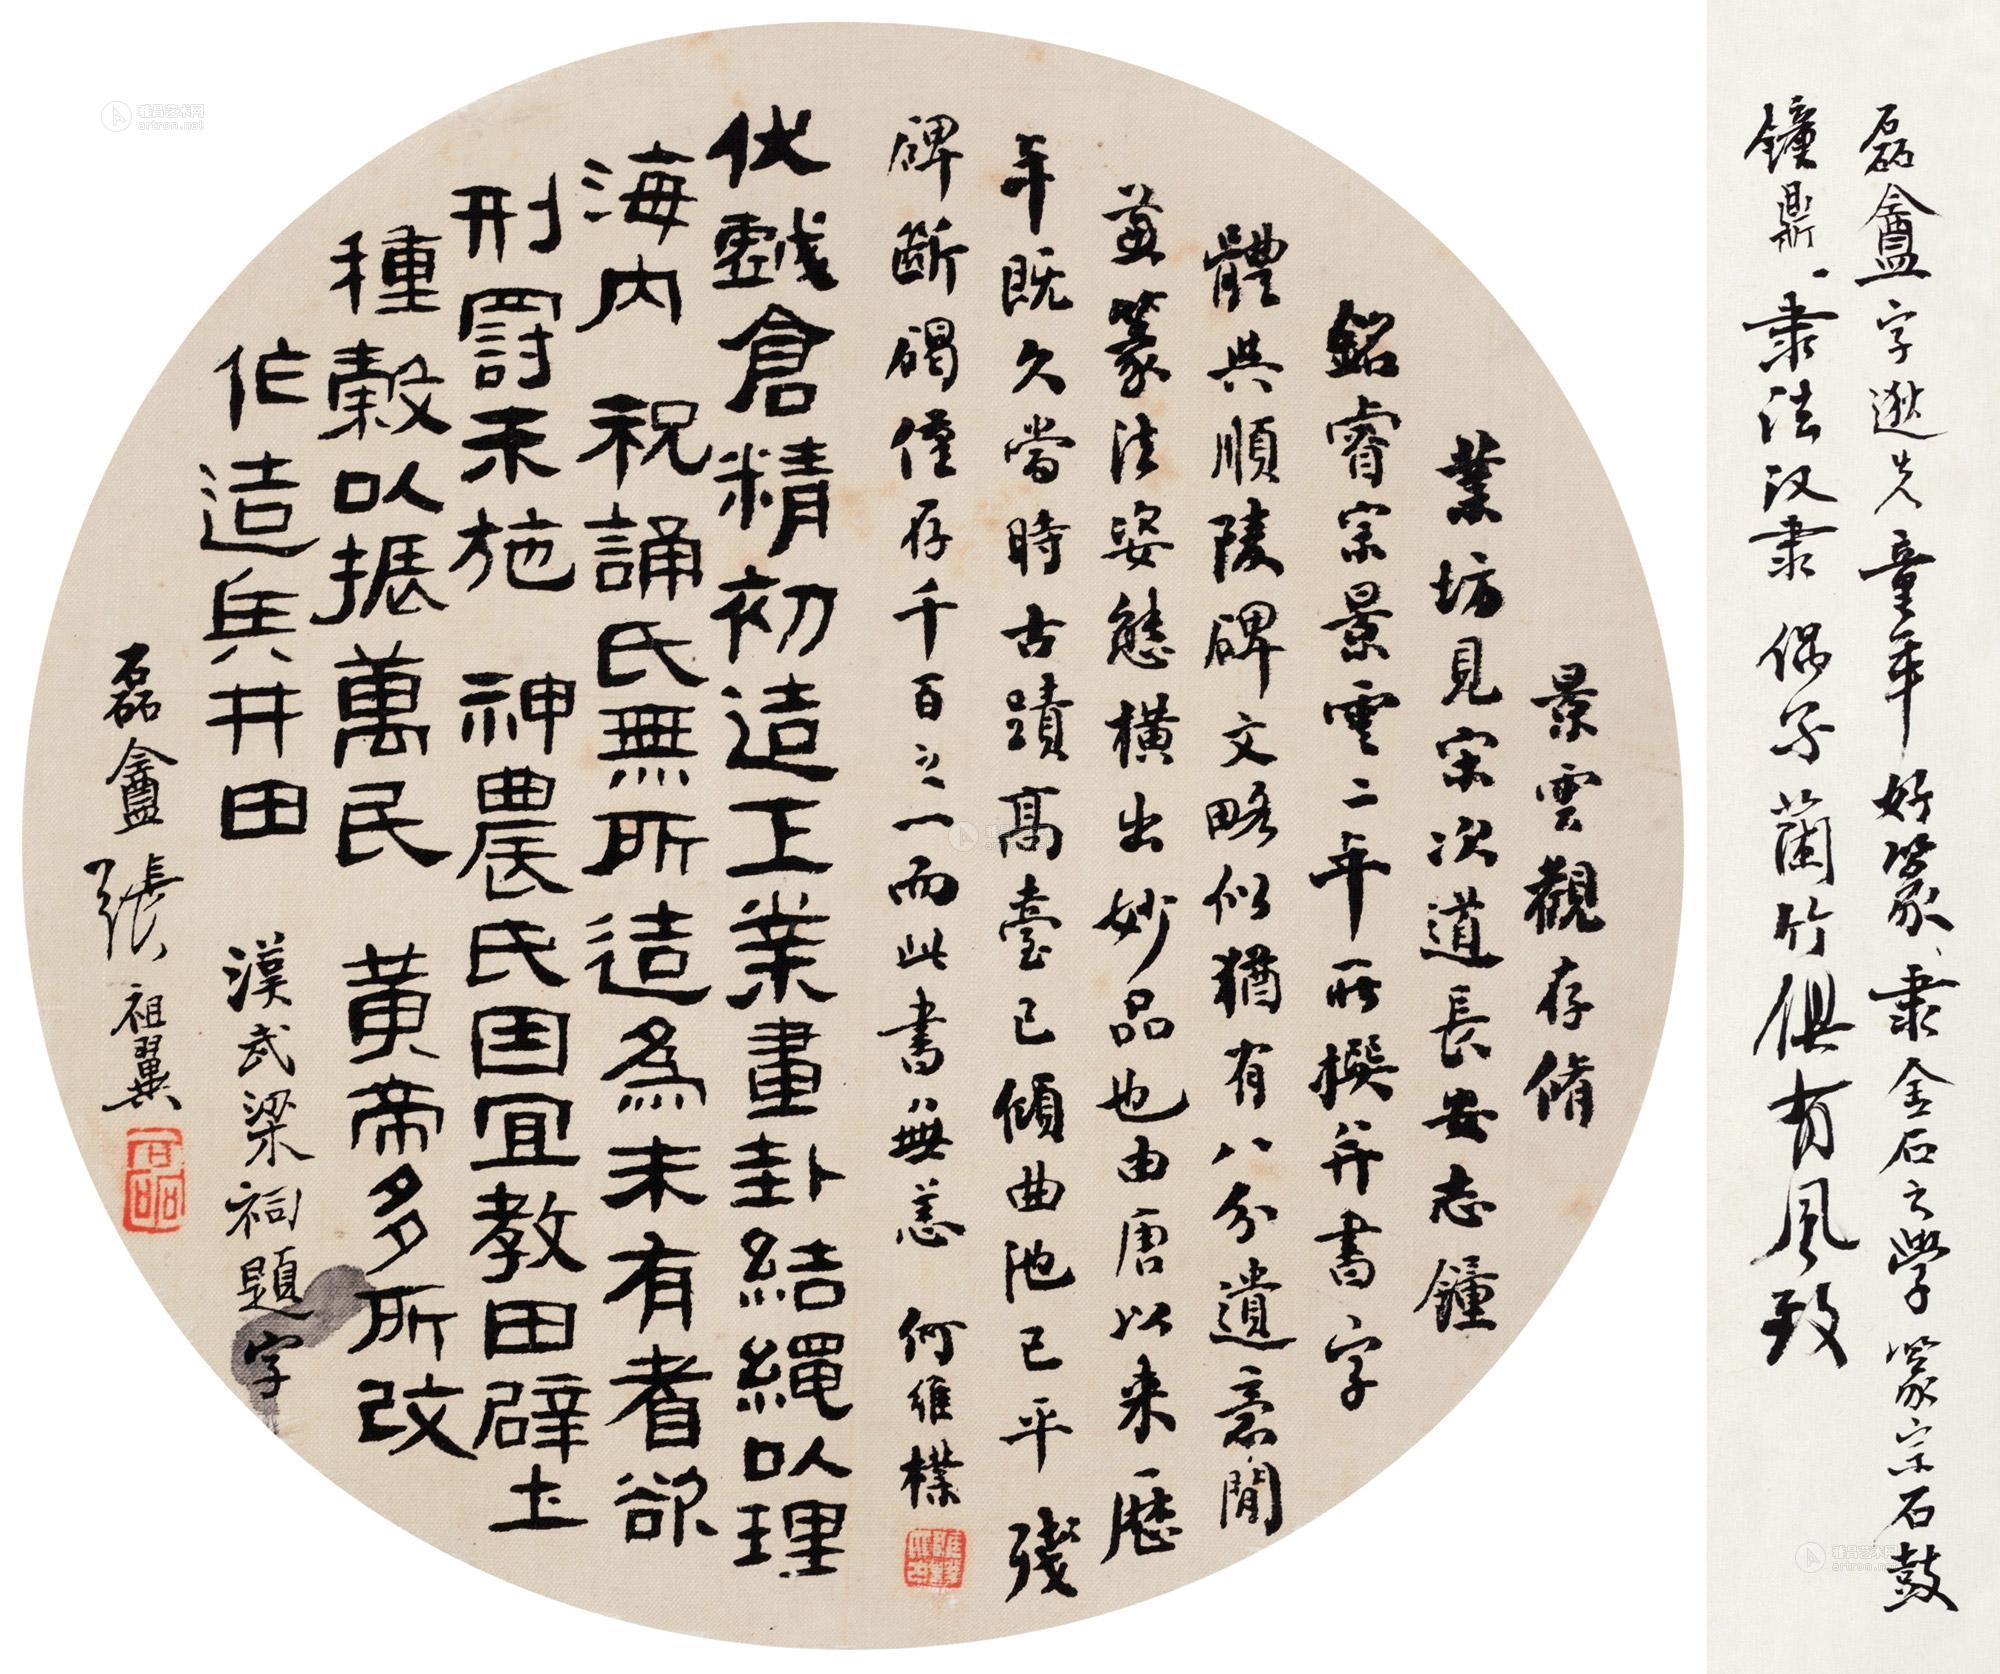 磊盦字逖先童年好篆、隶金石之学篆宗石鼓
鐘鼎.隶法汉隶偶尔蘭竹俱有風致
景雲觀存脩
業坊見宋次道長安志鐘
銘睿宗景雲二年所撰并書字
體與順陵碑文略似猶有八分遺意間
兼篆法姿態橫出妙品也由唐以来歷
年既久當時古蹟高臺已傾曲池已平殘
碑斷碣僅存千百之一而此書無恙 何維樸
伏戲倉精初造工業畫卦結繩以理
海内 祝誦氏無所造為未有耆欲
刑罰未施 神農氏因宜教田辟土
種穀以振萬民 黄帝多所改
作造兵井田 漢武梁祠題字
磊盦張祖翼
雅昌艺术网
artron.net
雅昌艺术网
artron.net
雅昌艺术网
artron.net